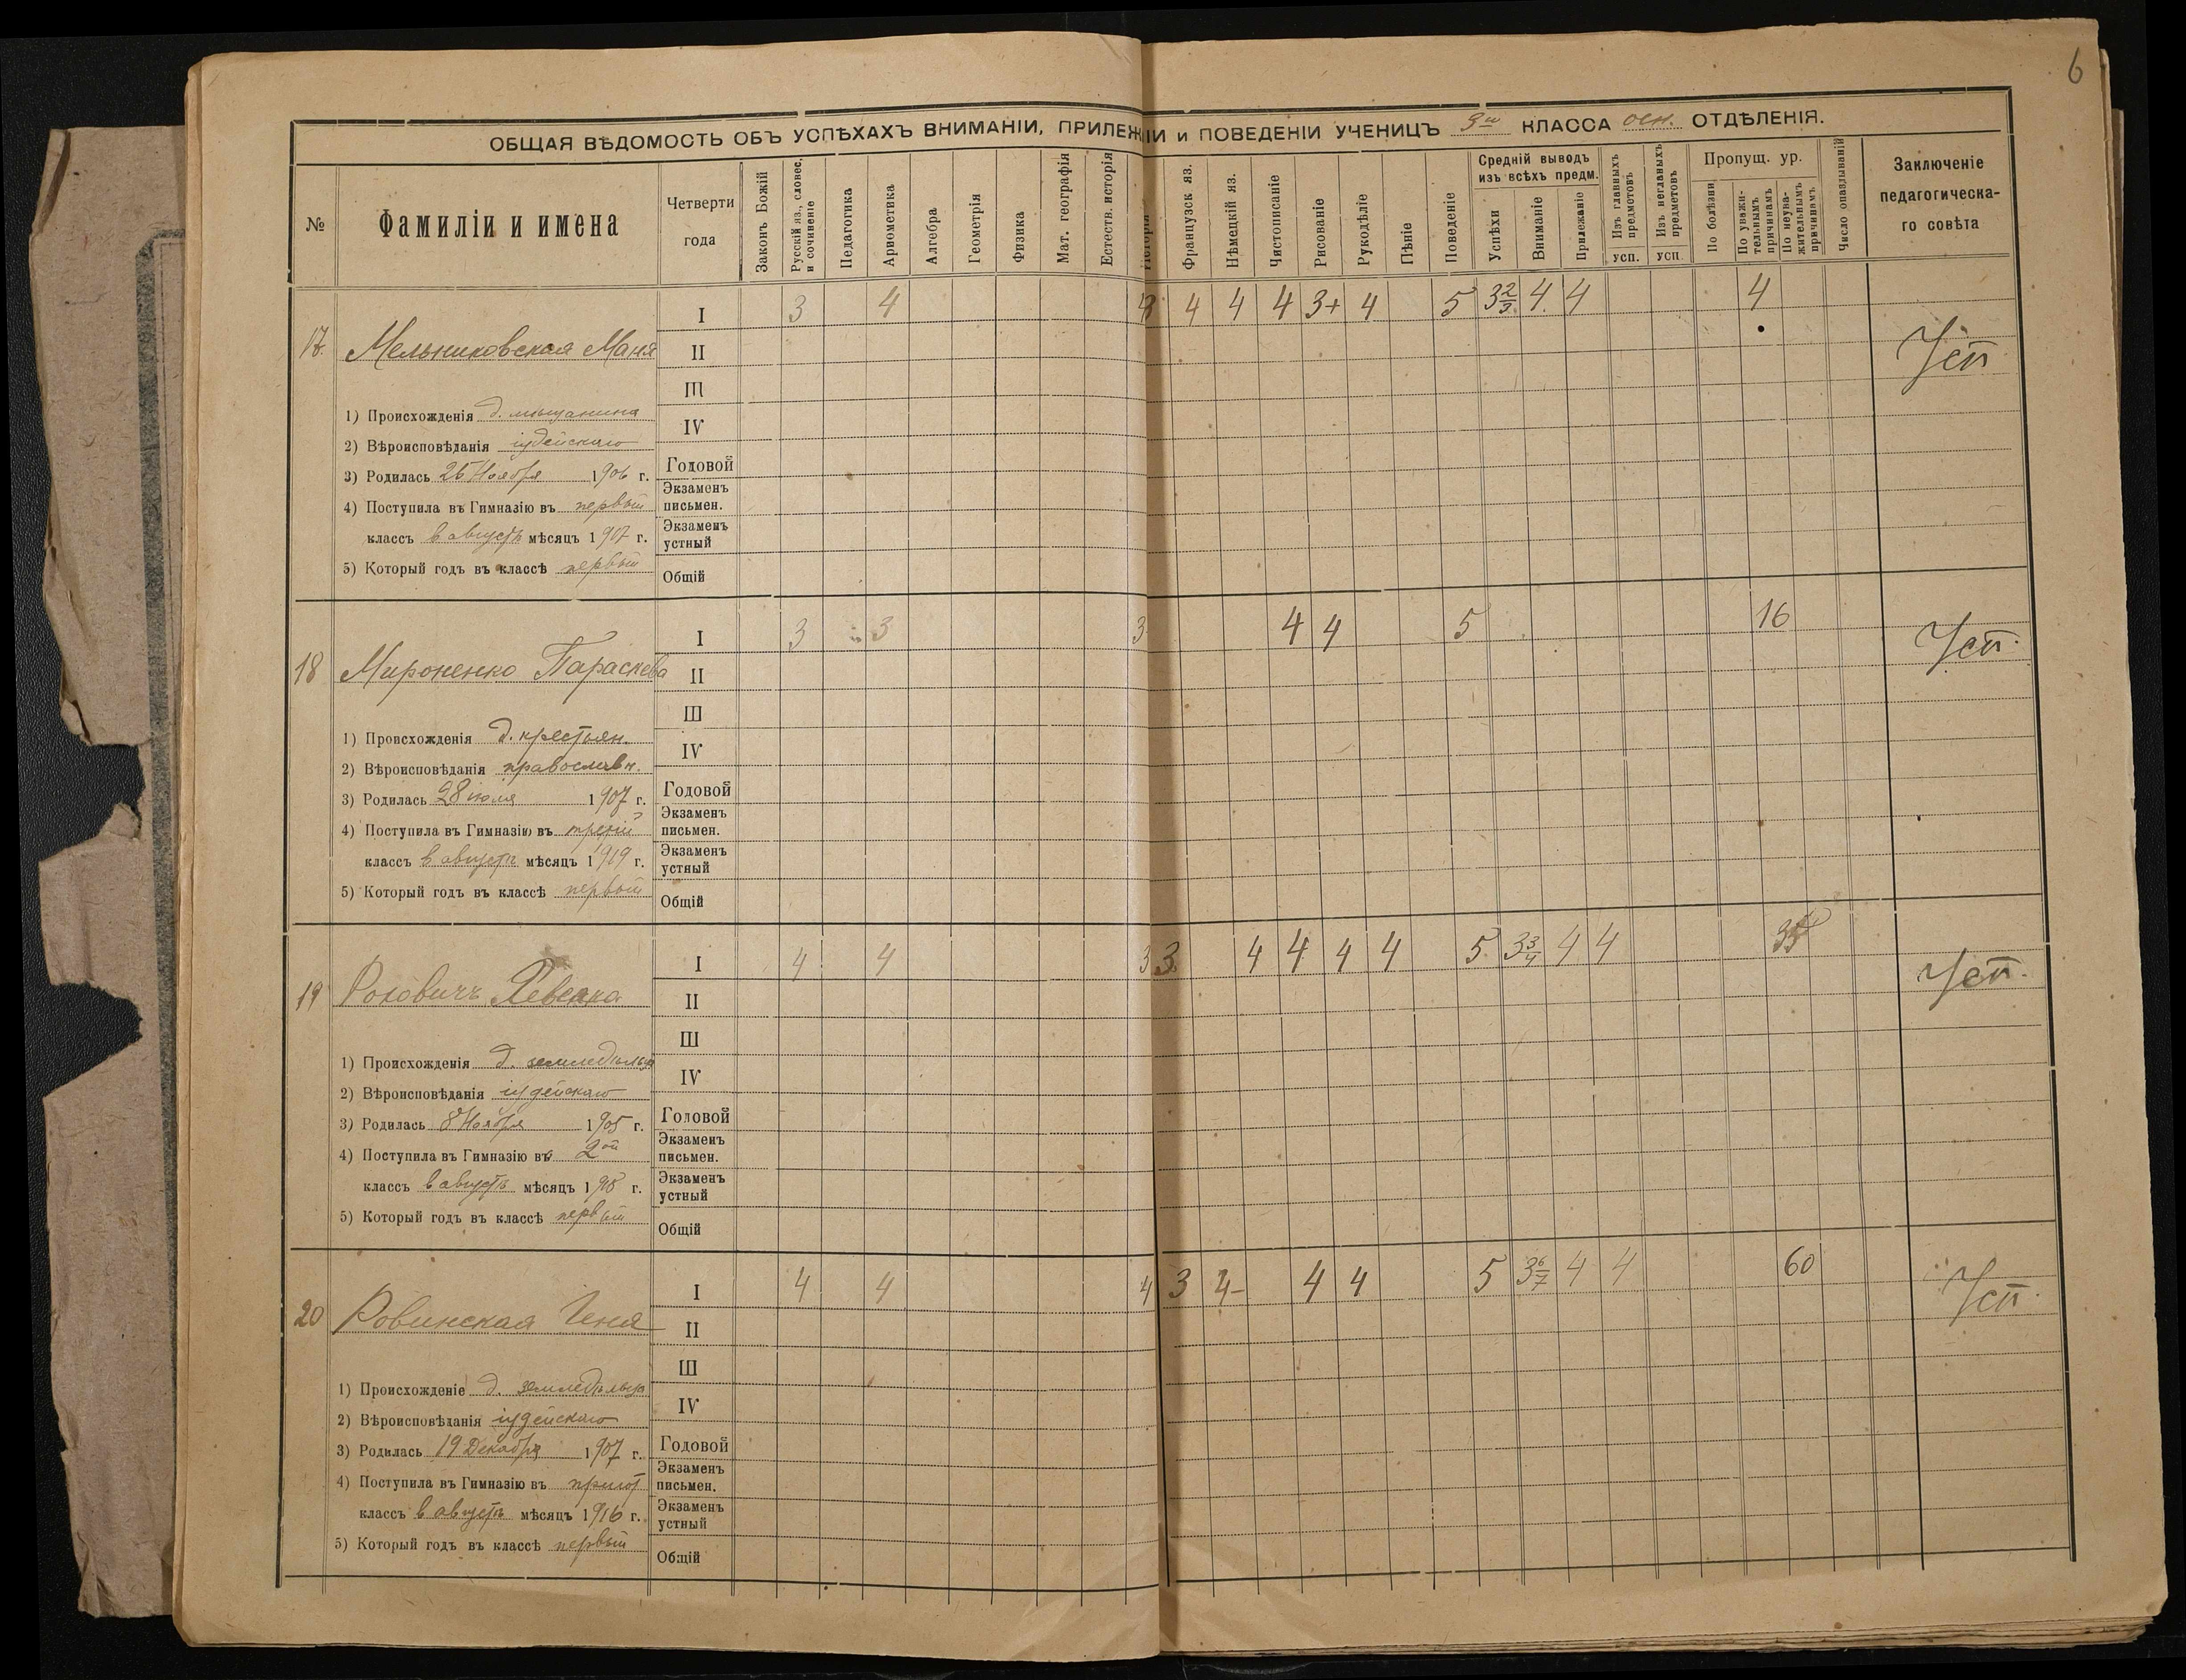 6
ОБЩАЯ ВѢДОМОСТЬ ОБЪ УСПѢХАХЪ ВНИМАНІИ, ПРИЛЕЖАНІИ и ПОВЕДЕНІИ УЧЕНИЦЪ 3го КЛАССА осн. ОТДѢЛЕНІЯ.
№ Фамиліи и имена Четверти года Законъ Божій Русскій яз., словес. и сочиненіе Педагогика Ариѳметика Алгебра Геометрія Физика Мат. географія Естеств. исторія Исторія Французск яз. Нѣмецкій яз. Чистописаніе Рисованіе Рукодѣліе Пѣніе Поведеніе Средній выводъ изъ всѣхъ предм. Успѣхи Вниманіе Прилежаніе Изъ главныхъ предметовъ усп. Изъ неглавныхъ предметовъ усп Пропущ. ур. По болѣзни По уважительнымъ причинамъ По неуважительнымъ причинамъ Число опаздываній Заключеніе педагогическаго совѣта
17. Мельниковская Маня I 3 4 4 4 4 3+ 4 5 3 2/3 4 4 4 Усп
II
III
1) Происхожденія д. мѣщанина
IV
2) Вѣроисповѣданія іудейскаго
Годовой
3) Родилась 26 Ноября 1906 г.
Экзаменъ письмен.
4) Поступила въ Гимназію въ первый
классъ в августѣ мѣсяцъ 1907 г.
Экзаменъ устный
5) Который годъ въ классѣ первый
Общій
18 Мироненко Параскева I 3 3 3 4 4 5 16 Усп.
II
III
1) Происхожденія д. крестьян.
IV
2) Вѣроисповѣданія православн.
Годовой
3) Родилась 28 июля 1907 г.
Экзаменъ письмен.
4) Поступила въ Гимназію въ третій
классъ в августѣ мѣсяцъ 1919 г.
Экзаменъ устный
5) Который годъ въ классѣ первый
Общій
19 Ревекка I 4 4 3 3 4 4 4 4 5 3 3/4 4 4 Усп.
II
III
1) Происхожденія д. земледѣльца
IV
2) Вѣроисповѣданія іудейскаго
Годовой
3) Родилась 8 Ноября 1905 г.
Экзаменъ письмен.
4) Поступила въ Гимназію въ 2ой
классъ в августѣ мѣсяцъ г.
Экзаменъ устный
5) Который годъ въ классѣ первый
Общій
20 Ровинская Геня I 4 4 4 3 4- 4 4 5 3 6/7 4 4 60 Усп.
II
III
1) Происхожденіе д. земледѣльца
IV
2) Вѣроисповѣданія іудейскаго
Годовой
3) Родилась 19 Декабря 1907 г.
Экзаменъ письмен.
4) Поступила въ Гимназію въ пригот
классъ в августѣ мѣсяцъ 1916 г.
Экзаменъ устный
5) Который годъ въ классѣ первый
Общій